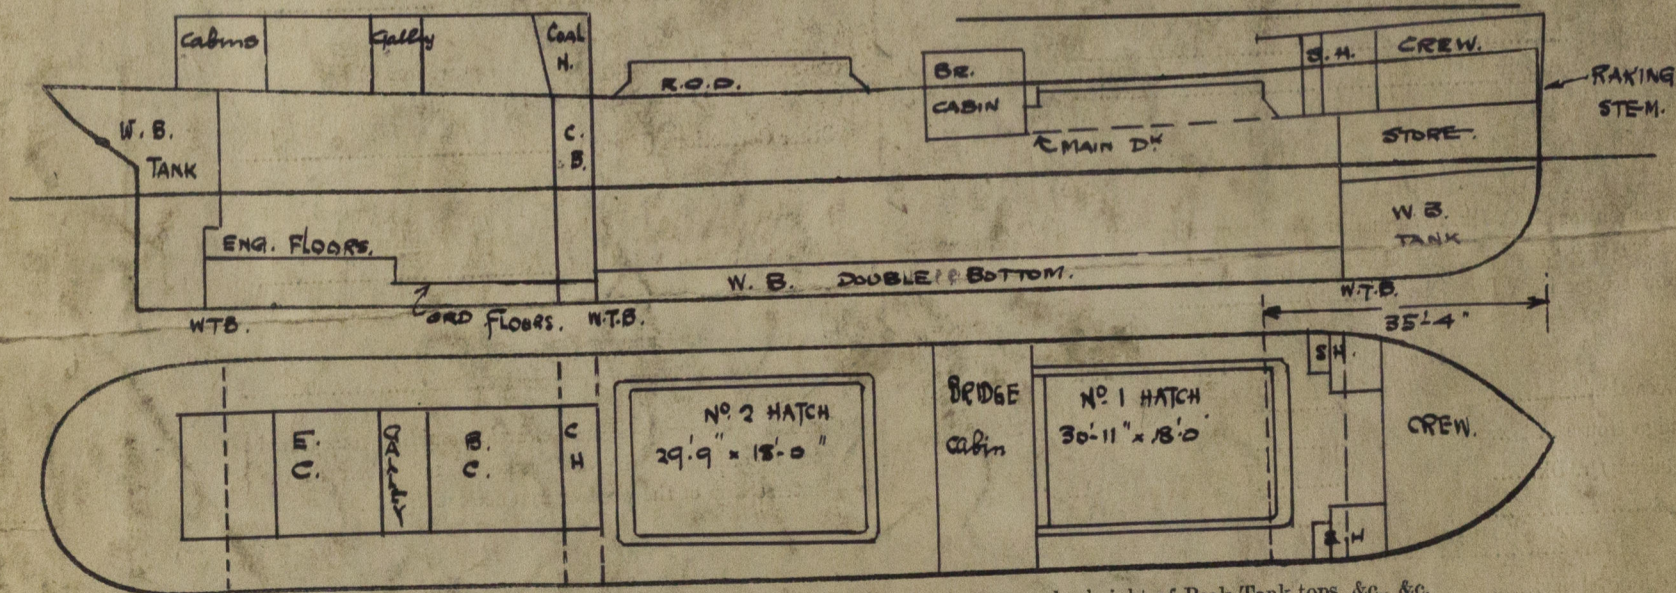 Cabins
Galley
COAL
H.
R.O.D.
BR.
CABIN
S.H.
CREW.
RAKING
STEM.
W.B.
TANK
C.
B.
MAIN DK
STORE.
ENG. FLOORS.
W.B.
TANK
W.B. DOUBLE BOTTOM.
WTB.
ORD FLOORS.
W.T.B.
W.T.B.
35'-4"
E.
C.
GALLEY
B.
C.
C
H
No. 2 HATCH
29'-9" x 18'-0"
BRIDGE
Cabin
No. 1 HATCH
30'-11" x 18'-0
S H.
CREW.
S H
height of Peak Tank tops, &c., &c.